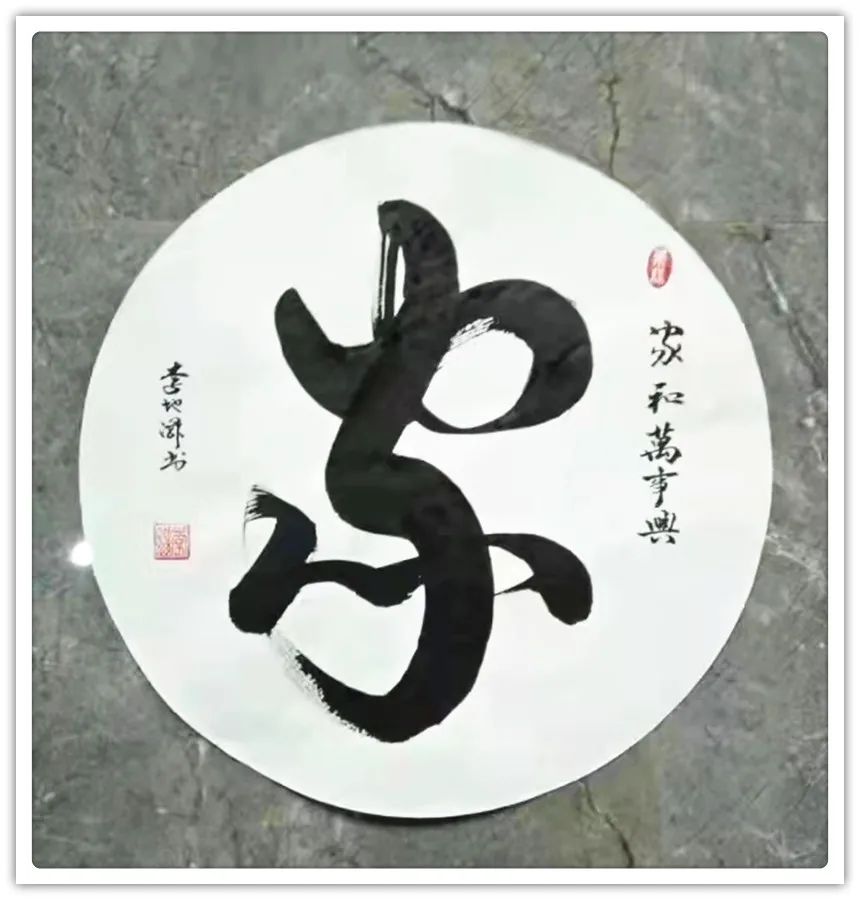 家
家和萬事興
李地澤书